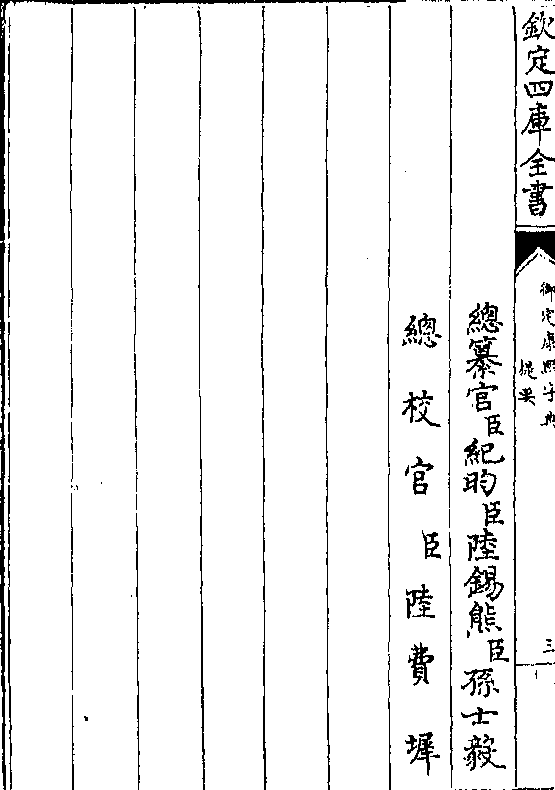 欽定四庫全書
御定康熙字典
提要
三
總纂官臣紀昀臣陸錫熊臣孫士毅
總校官臣陸費墀